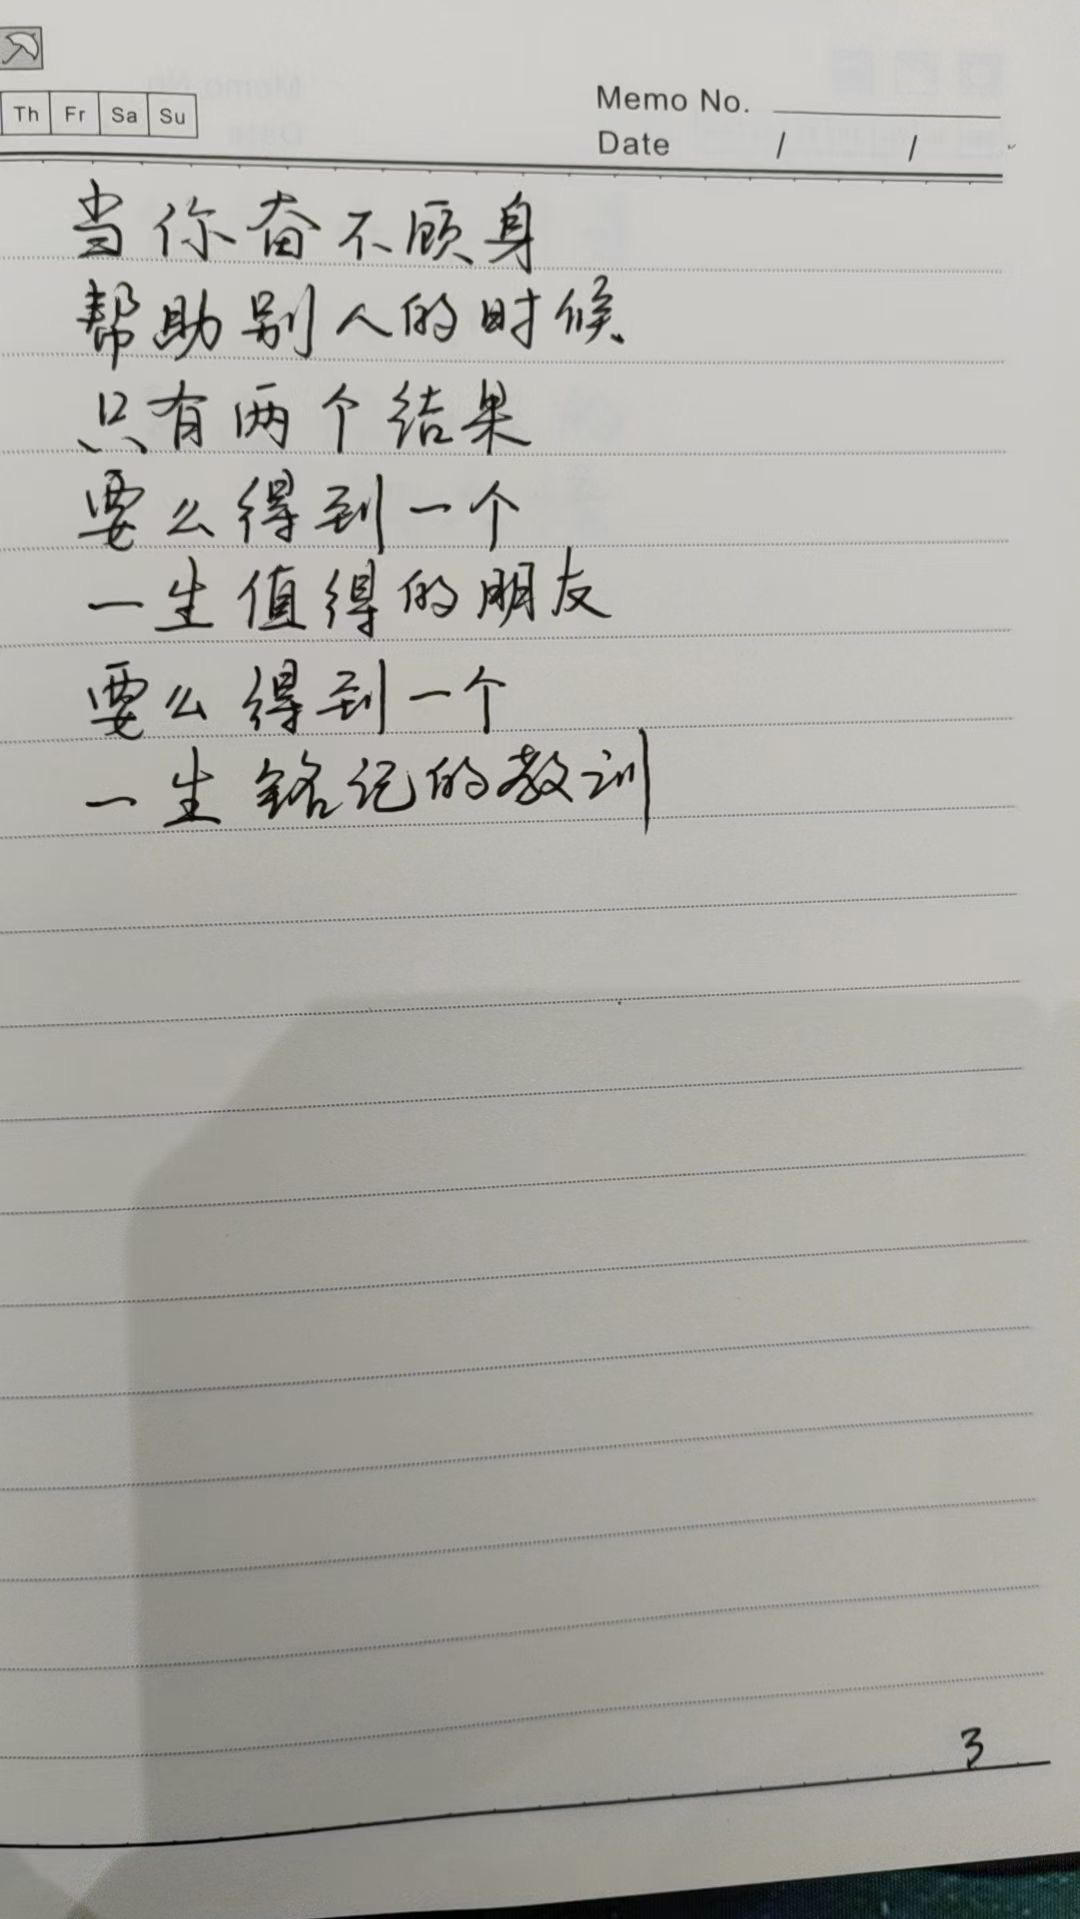 Th Fr Sa Su
Memo No.
Date / /
当你奋不顾身
帮助别人的时候
只有两个结果
要么得到一个
一生值得的朋友
要么得到一个
一生铭记的教训
3